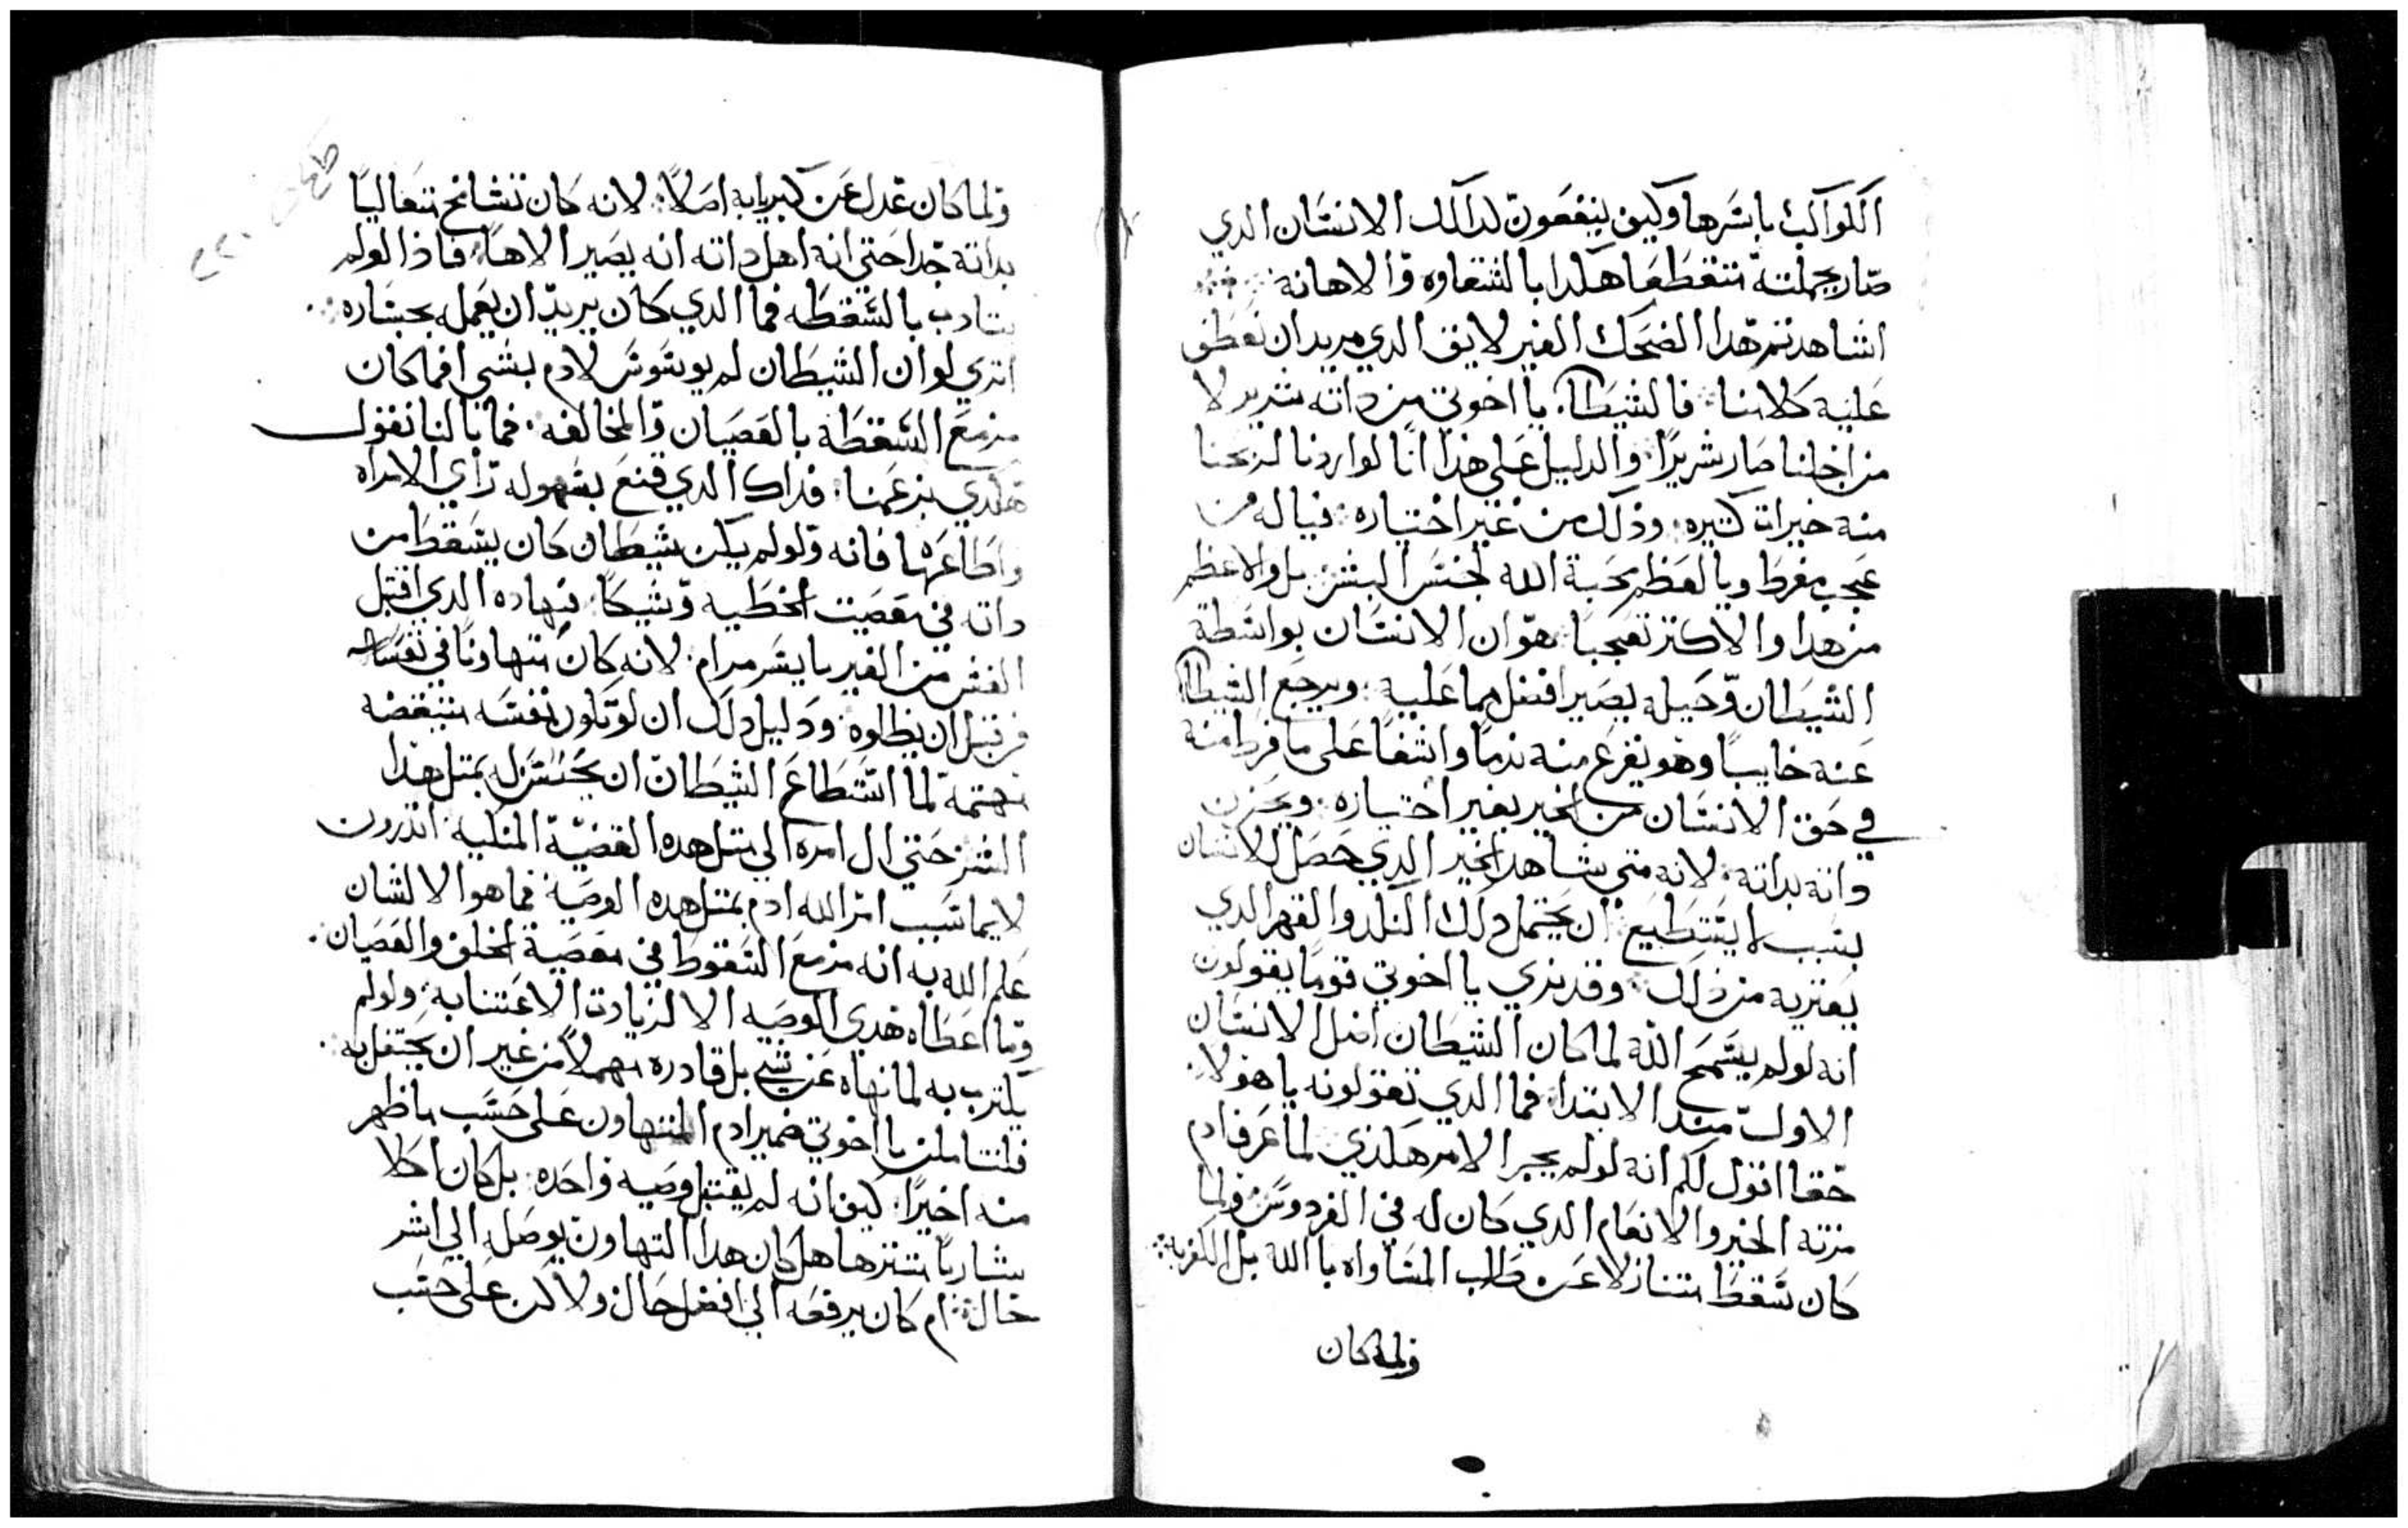 الكواكب باسرها وكيف ينفعون لدالك الانسان الدي
صار بجملته متقطعا هكدا بالشقاوه والاهانه
اشاهدتم هدا الضحك الغير لايق الدي مريدان نعطف
عليه كلامنا فالشيطان يا اخوتي من داته شرير لا
من اجلنا صار شريرًا والدليل على هذا انا لو اردنا لربحنا
منه خيرات كتيره وذلك من غير اختياره فياله من
عجب مفرط ويا لعظم محبة الله لجنس البشر بل والاعظم
من هدا والاكتر تعجبًا هو ان الانسان بواسطة
الشيطان وحيله يصير افضل مما عليه ويرجع الشيطان
عنه خايبًا وهو يقرع منه ندمًا واسفًا على ما فرط منه
في حق الانسان من الخير بغير اختياره ويحزن
داته بداته لانه متى يشاهد الخير الدي حصل للانسان
بسبب لا يستطيع ان يحتمل دلك النكد والقهر الدي
يعتريه من ذلك وقد نري يا اخوتي قومًا يقولون
انه لو لم يسمح الله لما كان الشيطان اضل الانسان
الاول مند الابتدا فما الدي تقولونه يا هولا
حقا اقول لكم انه لو لم يجرا الامر هكذي لما عرف ادم
مزته الخير والانعام الدي كان له في الفردوس ولما
كان سقط متنازلا عن طلب المساواه باالله بل اكفر به
ولما كان
ولما كان عدل عن كبريايه اصلاً لانه كان تشامخ متعاليًا
بداته جدا حتى انه اهل داته انه يصير الاهًا فاذا لو لم
يتادب بالسقطه فما الدي كان يريد ان يعمل بجساره
اتري لو ان الشيطان لم يوسوس لادم بشي افما كان
مزمع السقطة بالعصيان والمخالفه فما بالنا نقول
هكدي بزعمنا فذاك الدي قنع بسهوله راي الامراه
واطاعها فانه ولو لم يكن شيطان كان يسقط من
داته في معصيت الخطيه وشيكًا فهاده الدي اقتبل
الغش من الغير بايسر مرام لانه كان متهاونًا في نفسه
من قبل ان يطلوه ودليل دلك ان لو تكون نفسه متيقضه
مهتمة لما استطاع الشيطان ان يحتسر له بمتل هذا
الشر حتى ال امره الي متل هده القضية المنكيه اتدرون
لايما سبب امر الله ادم بمتل هده الوصية فما هو الا لشان
علم الله به انه مزمع السقوط في معصية الخلف والعصيان
وما اعطاه هدي الوصيه الا لزيادت الاعتنا به ولو لم
يكترب به لما نهاه عن شي بل قادره مهملاً من غير ان يحتفل به
فلنتاملن يا اخوتي ضمير ادم المتهاون على حسب ماظهر
منه اخيرًا كيف انه لم يقتبل وصيه واحده بل كان اكلا
شاربًا متنزها هل كان هدا التهاون يوصله الي اشر
حال ام كان يرفعه الي افضل حال ولا كن على حسب